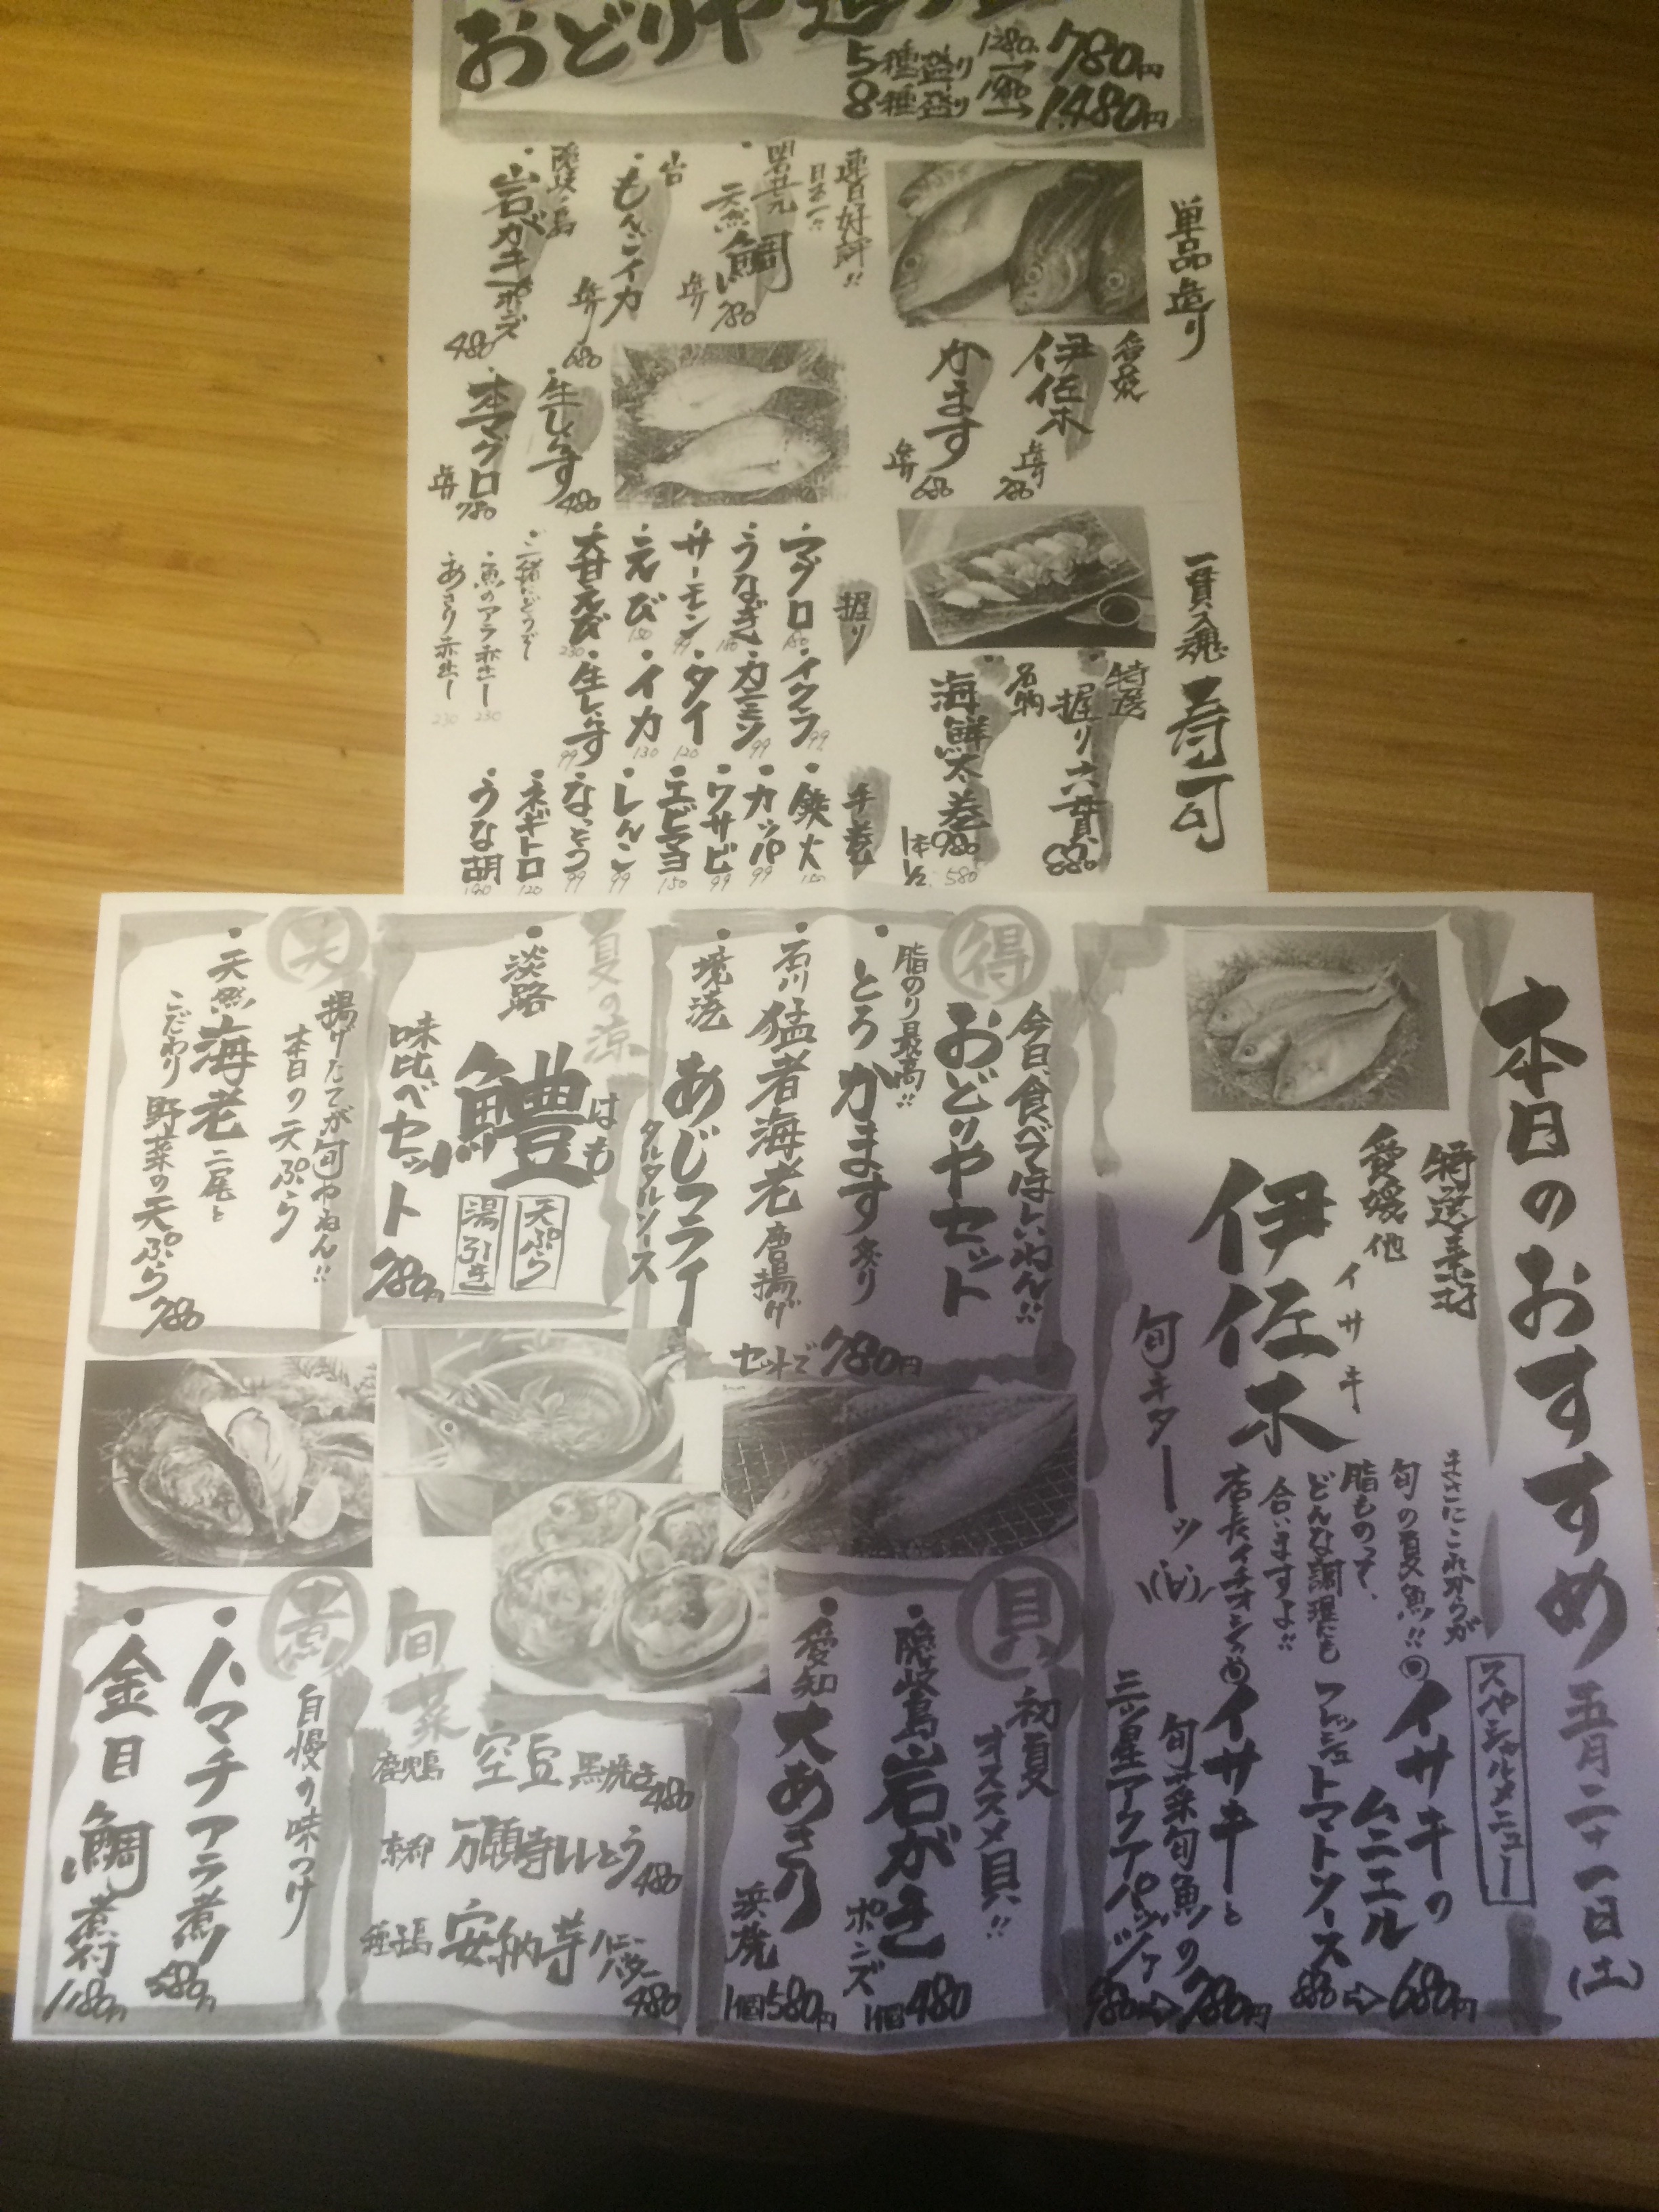 おどりや
5種盛り 1280→780円
8種盛り 1980→1,480円
単品造り
愛媛
伊佐木
造り 780
かます
造り 680
連日好評!!
明石
天然鯛
造り 780
もんごイカ
造り 680
隠岐ノ島
岩ガキポンズ
480
生しらす
480
本マグロ
造り 780
一貫入魂 寿司
特選
握り六貫 880
名物
海鮮太巻
1本 980
1/2 580
握り
マグロ
うなぎ
サーモン 99
えび 150
甘えび 230
イクラ 99
カニミソ 99
タイ 120
イカ 130
生しらす 99
ご一緒にどうぞ
魚のアラ赤出し 230
あさり赤出し 230
手巻
鉄火
カッパ 99
ワサビ 99
エビマヨ 150
レンコン 99
なっとう 99
ネギトロ 120
うな胡
本日のおすすめ 五月二十一日(土)
特選素材
愛媛他
イサキ
伊佐木
旬キターーッ
まさにこれからが
旬の夏魚!!
脂ものって、
どんな調理にも
合いますよ!!
店長イチオシ
スペシャルメニュー
イサキの
ムニエル
フレッシュトマトソース
880⇨680円
イサキと
旬菜旬魚の
三ツ星アクアパッツァ
980⇨780円
得
今日、食べてほしいねん!!
おどりやセット
脂のり最高!!
とろかます炙り
石川 猛者海老 唐揚げ
境港 あじフライ
タルタルソース
セットで780円
夏の涼
淡路
鱧 はも
天ぷら
湯引き
味比べセット
780円
天
揚げたてが旬やねん!!
本日の天ぷら
天然海老二尾と
こだわり野菜の天ぷら
780
貝
初夏
オススメ貝!!
隠岐島 岩がき
ポンズ
1個480
愛知 大あさり
浜焼
1個580円
旬菜
鹿児島 空豆 黒焼き 480
京都 万願寺ししとう 480
種子島 安納芋 ハニーバター 480
煮
自慢の味つけ
ハマチアラ煮
580円
金目鯛煮付
1180円